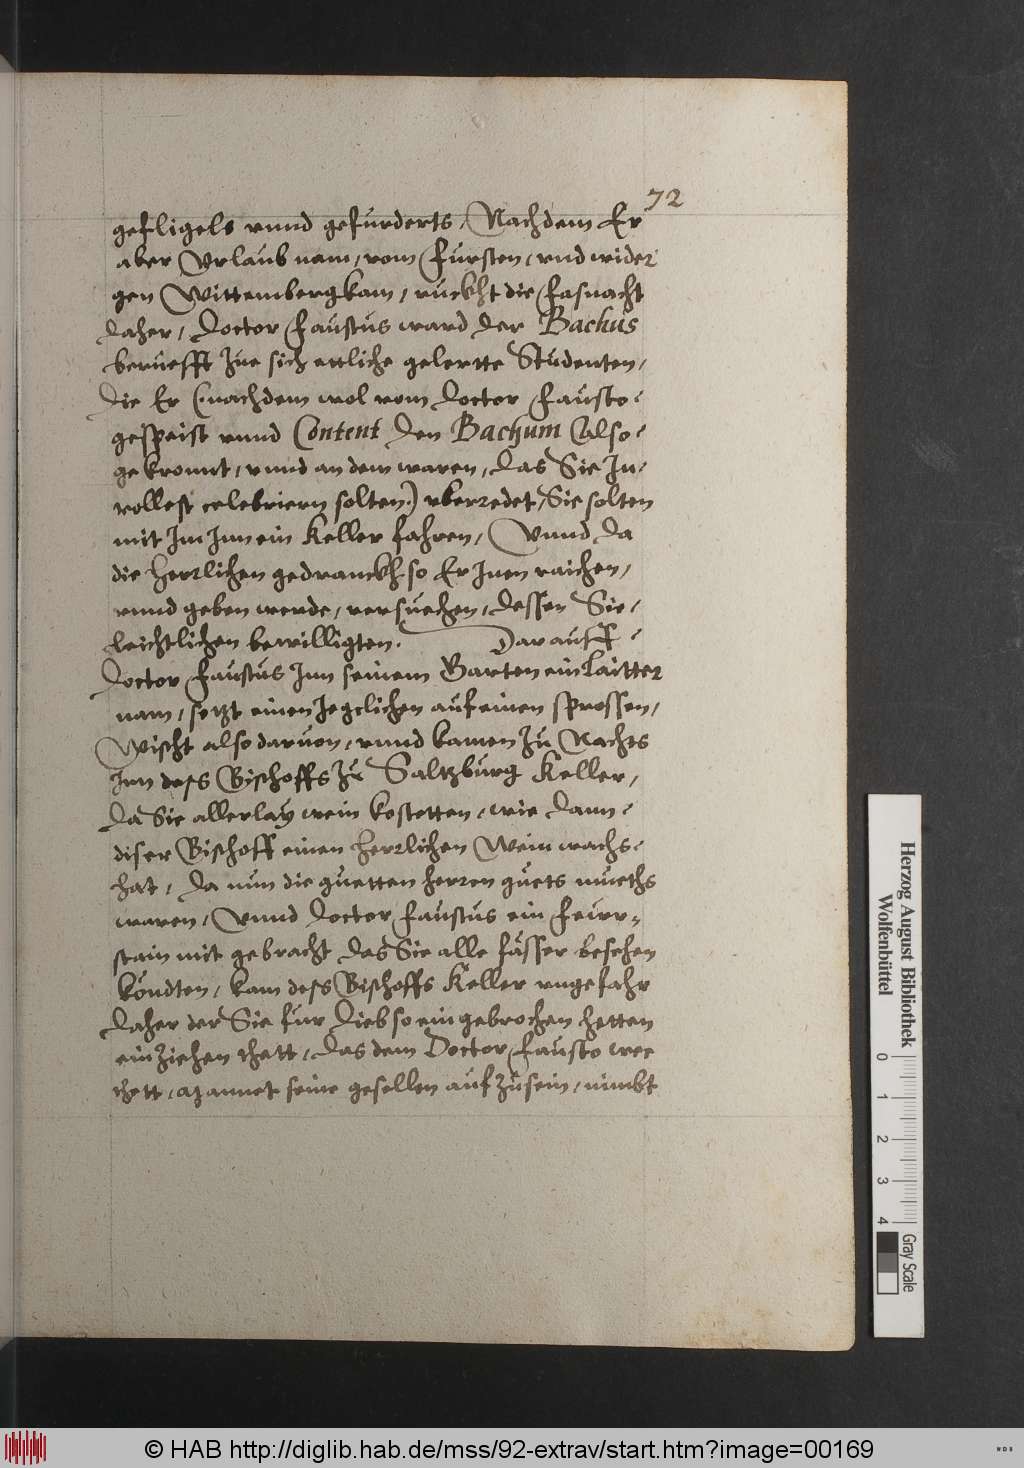 72
gefligels vnnd gefürderts, Nachdem Er
aber Vrlaub nam, vom Fürsten, vnd wider
gen Wittemberg kam, ruckht die Fasnacht
daher, Doctor Faustus ward der Bachus
berüefft zue sich ettliche gelertte Studenten,
die Er (nachdem wol vom Doctor Fausto
gespeist vnnd Content den Bachum also
gekronnt, vnnd an dem waren, das Sie In
vollest celebriern solten) vberredet, Sie solten
mit Im Inn ein Keller fahren, Vnnd da
die herrlichen gedranckh so Er Inen raichen,
vnnd geben werde, versuechen, dessen Sie
leichtlichen bewilligten. Darauff
Doctor Faustus Inn seinem Garten ein Laitter
nam, setzt einen Jeglichen auf einen sprossen,
Wischt also daruon, vnnd kamen zu Nachts
Inn dess Bischoffs zu Saltzburg Keller,
da Sie allerlay wein kostetten, wie dann
diser Bischoff einen herrlichen Weinwachs
hat, da nun die guetten herren guets mueths
waren, Vnnd Doctor Faustus ein Fewr-
stain mit gebracht das Sie alle fässer besehen
köndten, kam dess Bischoffs Keller vngefahr
daher der Sie für Dieb so eingebrochen hetten
einziehen thett, das dem Doctor Fausto wee
thett, manet seine gesellen auf zu sein, nimbt
Herzog August Bibliothek
Wolfenbüttel
0 1 2 3 4
Gray Scale
© HAB http://diglib.hab.de/mss/92-extrav/start.htm?image=00169